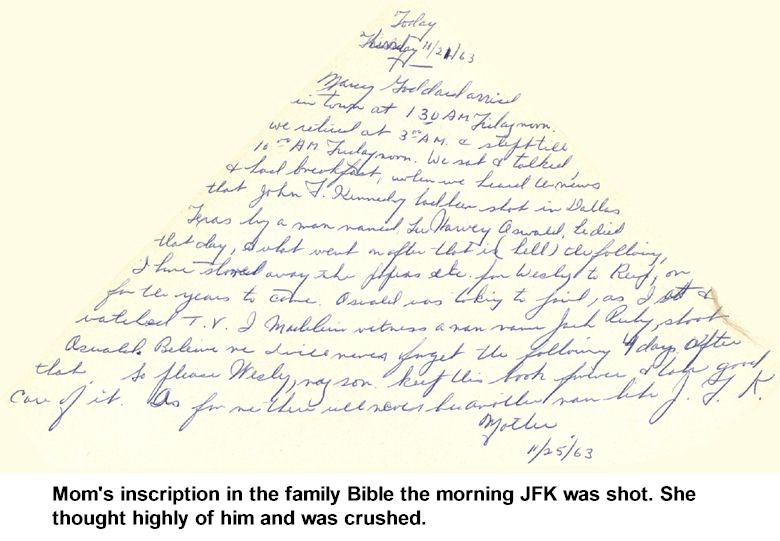 Today
Thursday 11/21/63
Marcy Goddard arrived
in town at 1 30 AM Friday morn.
we retired at 3 00 AM. & slept till
10 00 AM Friday morn. We sat & talked,
& had breakfast, when we heard the news
that John F. Kennedy had been shot in Dallas
Texas by a man named Lee Harvey Oswald, he died
that day, & what went on after that is (hell) the following,
I have stored away the papers etc. for Wesley to Read, on
for the years to come. Oswald was taking to jail, as I sat &
watched T.V. I Madelein witness a man name Jack Ruby, shoot
Oswald. Believe me I will never forget the following 4 days after
that. So please Wesley, my son. keep this book forever & take good
care of it. As for me there will never be another man like J. F. K.
Mother
11/25/63
Mom's inscription in the family Bible the morning JFK was shot. She
thought highly of him and was crushed.